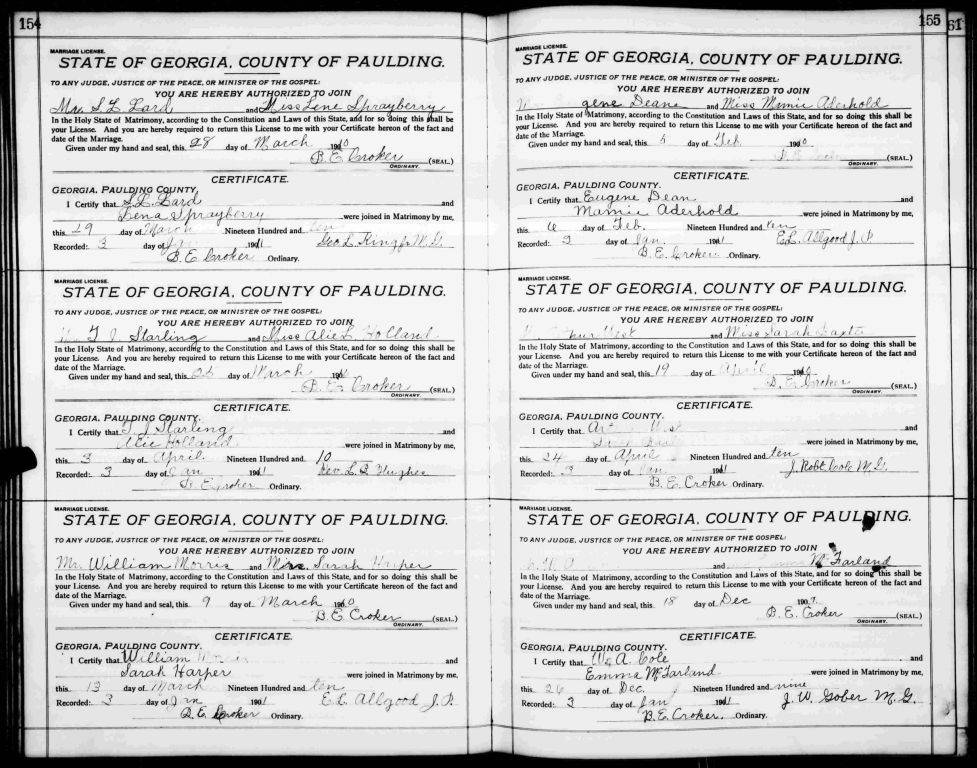 154
MARRIAGE LICENSE.
STATE OF GEORGIA, COUNTY OF PAULDING.
TO ANY JUDGE, JUSTICE OF THE PEACE, OR MINISTER OF THE GOSPEL:
YOU ARE HEREBY AUTHORIZED TO JOIN
Mr. S L Lard and Miss Lene Sprayberry
In the Holy State of Matrimony, according to the Constitution and Laws of this State, and for so doing this shall be
your License. And you are hereby required to return this License to me with your Certificate hereon of the fact and
date of the Marriage.
Given under my hand and seal, this 28 day of March 1910
B. E. Croker (SEAL.)
ORDINARY.
CERTIFICATE.
GEORGIA, PAULDING COUNTY.
I Certify that S. L. Lard and
Lena Sprayberry were joined in Matrimony by me,
this 29 day of March Nineteen Hundred and ten
Recorded: 3 day of Jan 1911 Geo L. King
B. E. Croker Ordinary.
MARRIAGE LICENSE.
STATE OF GEORGIA, COUNTY OF PAULDING.
TO ANY JUDGE, JUSTICE OF THE PEACE, OR MINISTER OF THE GOSPEL:
YOU ARE HEREBY AUTHORIZED TO JOIN
T. J. Starling and Miss Alie L Holland
In the Holy State of Matrimony, according to the Constitution and Laws of this State, and for so doing this shall be
your License. And you are hereby required to return this License to me with your Certificate hereon of the fact and
date of the Marriage.
Given under my hand and seal, this day of March 1910
B. E. Croker (SEAL.)
ORDINARY.
CERTIFICATE.
GEORGIA, PAULDING COUNTY.
I Certify that T. J Starling and
Alie Holland were joined in Matrimony by me,
this 3 day of April Nineteen Hundred and 10
Recorded: 3 day of Jan 1911 Rev. L. B Hughes
B. E. Croker Ordinary.
MARRIAGE LICENSE.
STATE OF GEORGIA, COUNTY OF PAULDING.
TO ANY JUDGE, JUSTICE OF THE PEACE, OR MINISTER OF THE GOSPEL:
YOU ARE HEREBY AUTHORIZED TO JOIN
Mr. William Morris and Miss. Sarah Harper
In the Holy State of Matrimony, according to the Constitution and Laws of this State, and for so doing this shall be
your License. And you are hereby required to return this License to me with your Certificate hereon of the fact and
date of the Marriage.
Given under my hand and seal, this 9 day of March 1910
B. E. Croker (SEAL.)
ORDINARY.
CERTIFICATE.
GEORGIA, PAULDING COUNTY.
I Certify that William Morris and
Sarah Harper were joined in Matrimony by me,
this 13 day of March Nineteen Hundred and ten
Recorded: 3 day of Jan 1911 E. L. Allgood J. P.
B. E. Croker Ordinary.
155
61
MARRIAGE LICENSE.
STATE OF GEORGIA, COUNTY OF PAULDING.
TO ANY JUDGE, JUSTICE OF THE PEACE, OR MINISTER OF THE GOSPEL:
YOU ARE HEREBY AUTHORIZED TO JOIN
gene Deane and Miss Mimie Aderhold
In the Holy State of Matrimony, according to the Constitution and Laws of this State, and for so doing this shall be
your License. And you are hereby required to return this License to me with your Certificate hereon of the fact and
date of the Marriage.
Given under my hand and seal, this 5 day of Feb 1910
(SEAL.)
ORDINARY.
CERTIFICATE.
GEORGIA, PAULDING COUNTY.
I Certify that Eugene Dean and
Mamie Aderhold were joined in Matrimony by me,
this 6 day of Feb. Nineteen Hundred and ten
Recorded: 3 day of Jan. 1911 E. L. Allgood J. P.
B. E. Croker Ordinary.
MARRIAGE LICENSE.
STATE OF GEORGIA, COUNTY OF PAULDING.
TO ANY JUDGE, JUSTICE OF THE PEACE, OR MINISTER OF THE GOSPEL:
YOU ARE HEREBY AUTHORIZED TO JOIN
West and Miss Sarah
In the Holy State of Matrimony, according to the Constitution and Laws of this State, and for so doing this shall be
your License. And you are hereby required to return this License to me with your Certificate hereon of the fact and
date of the Marriage.
Given under my hand and seal, this 19 day of April 1910
B. E. Croker (SEAL.)
ORDINARY.
CERTIFICATE.
GEORGIA, PAULDING COUNTY.
I Certify that West and
were joined in Matrimony by me,
this 24 day of April Nineteen Hundred and ten
Recorded: 3 day of Jan 1911 J. Robt. Cole M. G.
B. E. Croker Ordinary.
MARRIAGE LICENSE.
STATE OF GEORGIA, COUNTY OF PAULDING.
TO ANY JUDGE, JUSTICE OF THE PEACE, OR MINISTER OF THE GOSPEL:
YOU ARE HEREBY AUTHORIZED TO JOIN
and McFarland
In the Holy State of Matrimony, according to the Constitution and Laws of this State, and for so doing this shall be
your License. And you are hereby required to return this License to me with your Certificate hereon of the fact and
date of the Marriage.
Given under my hand and seal, this 18 day of Dec 1909.
B. E. Croker (SEAL.)
ORDINARY.
CERTIFICATE.
GEORGIA, PAULDING COUNTY.
I Certify that W. A. Cole and
Emma McFarland were joined in Matrimony by me,
this 26 day of Dec. Nineteen Hundred and nine
Recorded: 3 day of Jan 1911 J. W. Gober M. G.
B. E. Croker. Ordinary.